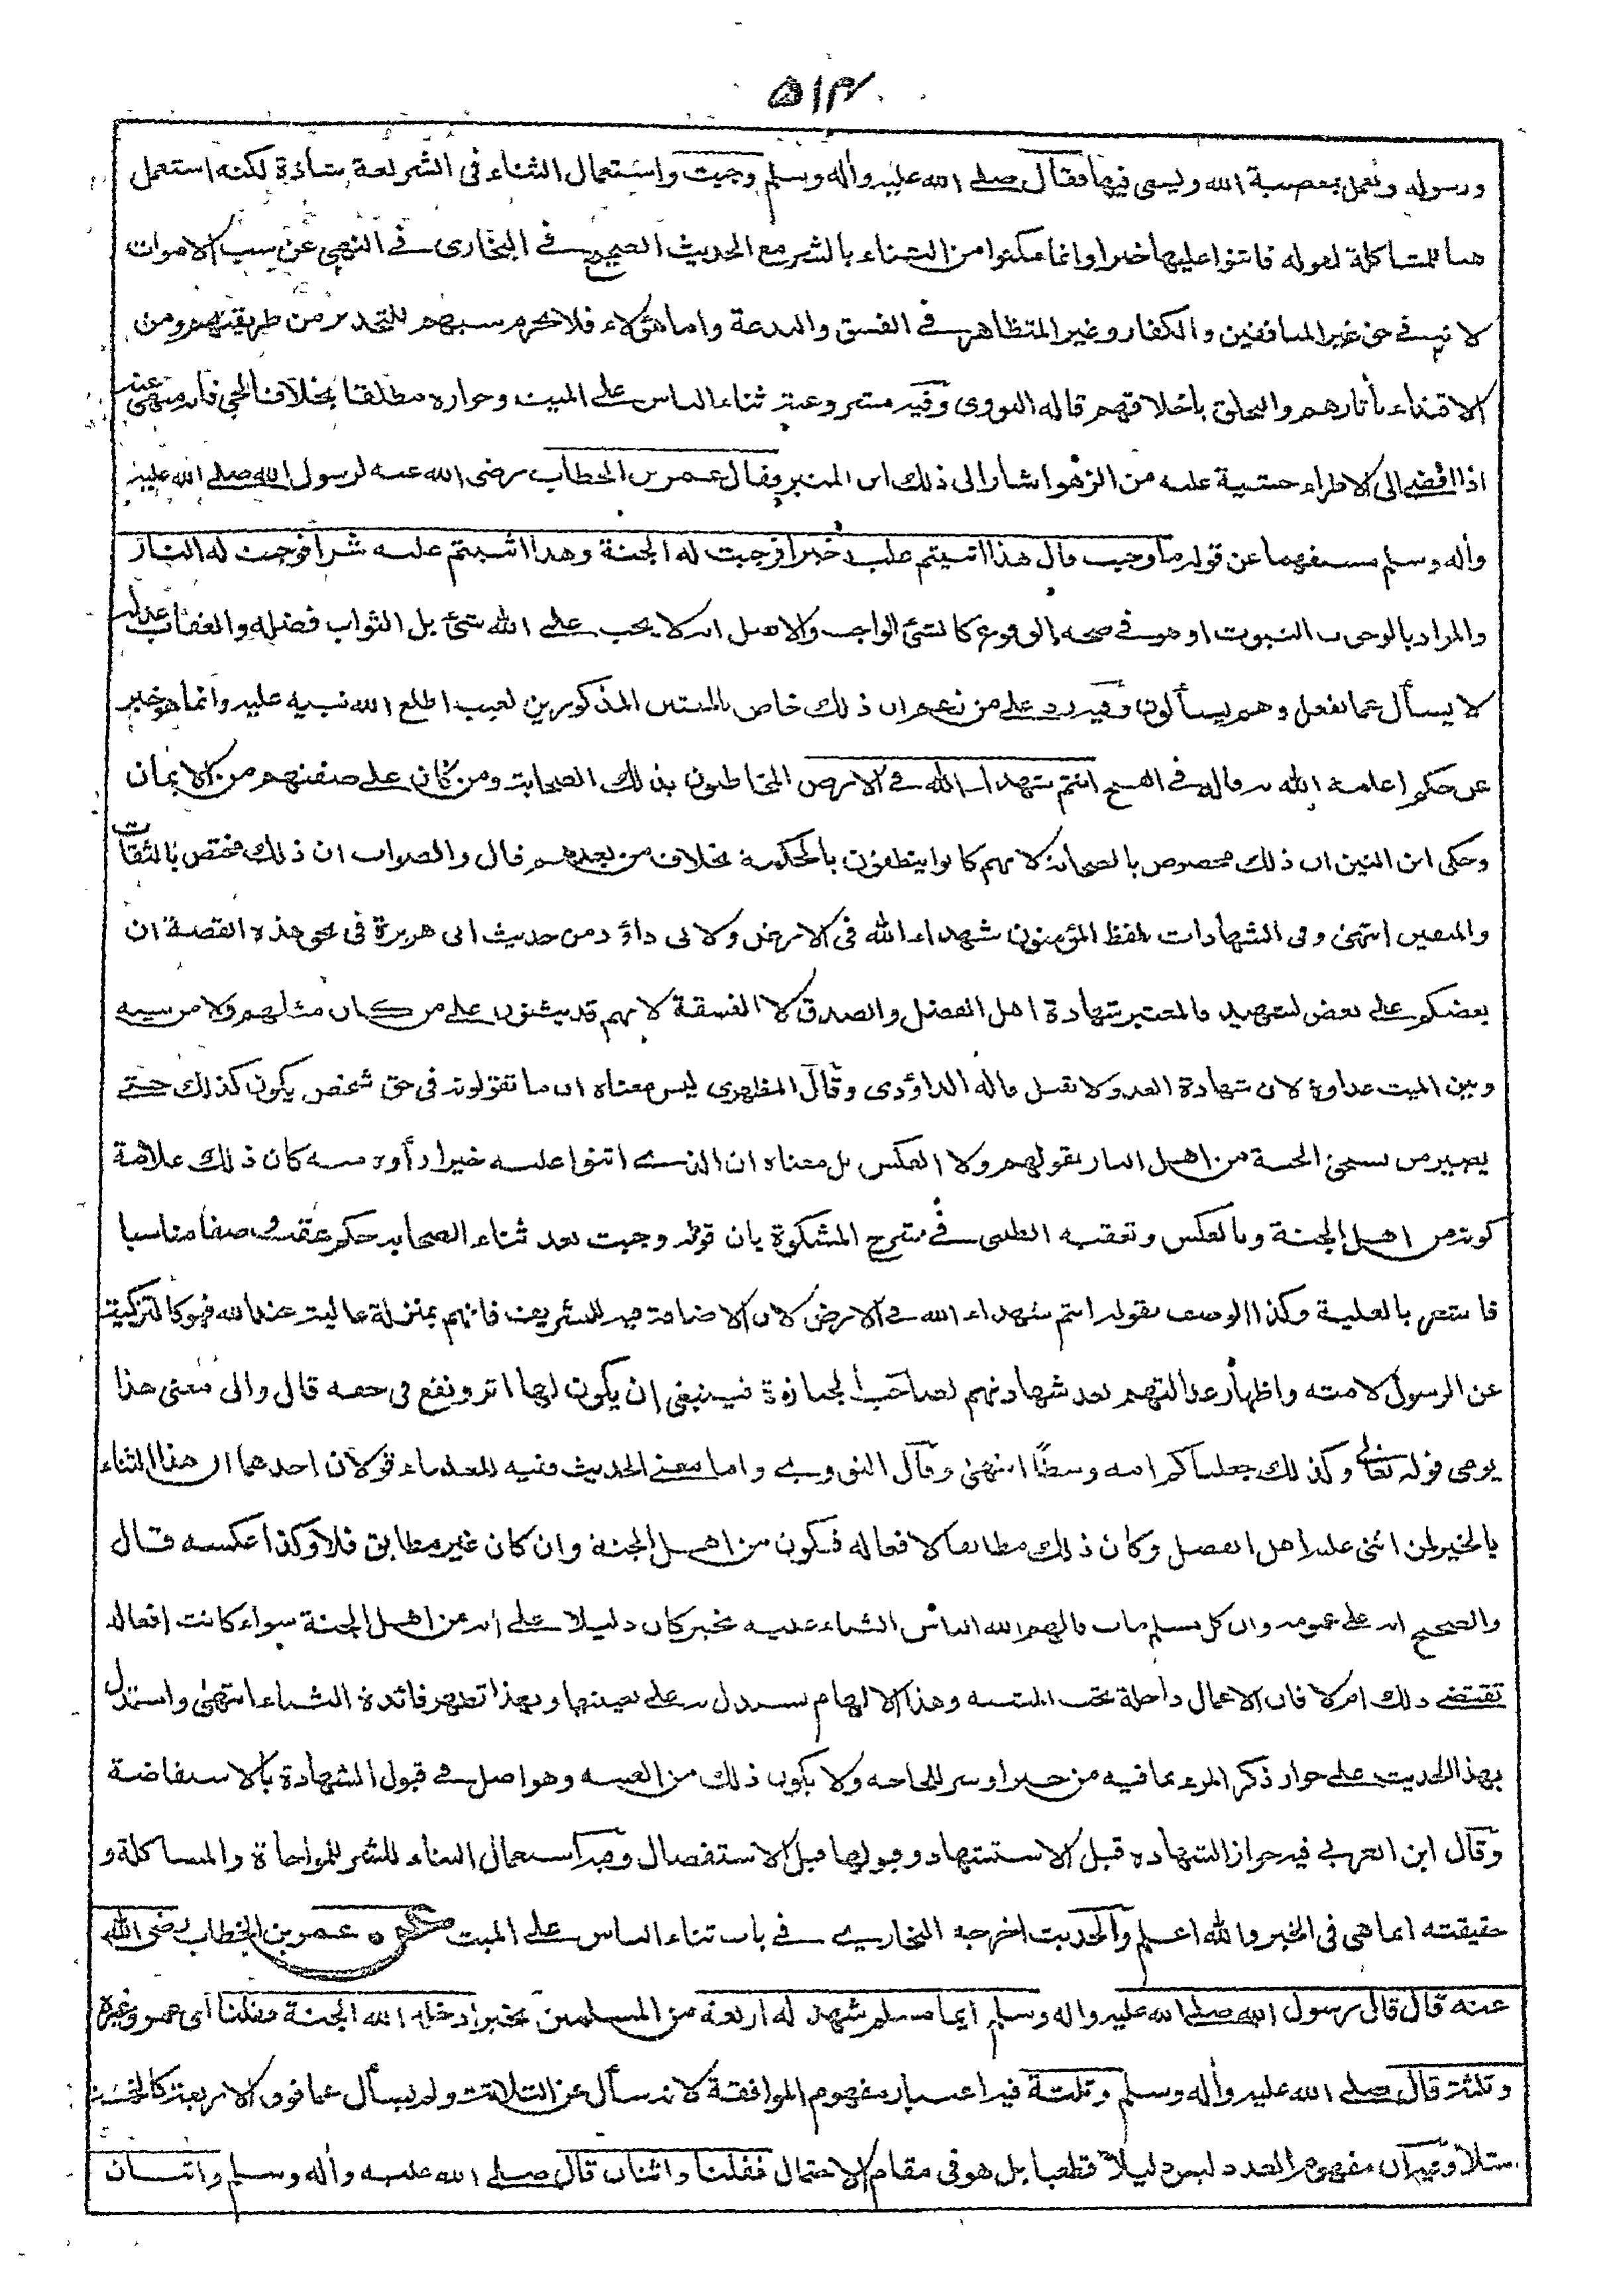 ٥١٣
ورسوله ويعمل بمعصية الله ويسعى فيها فقال صلى الله عليه وأله وسلم وجبت واستعمال الثناء فى الشر لغة شاذة لكنه استعمل
هنا للمشاكلة لقوله فاثنوا عليها خيرا وانما مكنوا من الثناء بالشر مع الحديث الصحيح فى البخارى فى النهى عن سب الاموات
لانه فى حق غير المنافقين والكفار وغير المتظاهر فى الفسق والبدعة واما هؤلاء فلا يحرم سبهم للتحذير من طريقتهم ومن
الاقتداء بأثارهم والتخلق باخلاقهم قاله النووى وفيه مشروعية ثناء الناس على الميت وجوازه مطلقا بخلاف الحى فانه منهى عنه
اذا افضى الى الاطراء خشية عليه من الزهو اشار الى ذلك ابن المنير وقال عمر بن الخطاب رضى الله عنه لرسول الله صلى الله عليه
وأله وسلم مستفهما عن قوله ما وجبت قال هذا اثنيتم عليه خيرا فوجبت له الجنة وهذا اثنيتم عليه شرا فوجبت له النار
والمراد بالوجوب الثبوت او هو فى صحة الوقوع كالشئ الواجب والاصل انه لا يجب على الله شئ بل الثواب فضله والعقاب عدله
لا يسأل عما يفعل وهم يسألون وفيه رد على من زعم ان ذلك خاص بالميتين المذكورين لغيب اطلع الله نبيه عليه وانما هو خبر
عن حكم اعلمه الله به قاله فى الفتح انتم شهداء الله فى الارض المخاطبون بذلك الصحابة ومن كان على صفتهم من الايمان
وحكى ابن التين ان ذلك مخصوص بالصحابة لانهم كانوا ينطقون بالحكمة بخلاف من بعدهم قال والصواب ان ذلك مختص بالثقات
والمتقين انتهى وفى الشهادات بلفظ المؤمنون شهداء الله فى الارض ولابى داؤد من حديث ابى هريرة فى نحو هذه القصة ان
بعضكم على بعض لشهيد فالمعتبر شهادة اهل الفضل والصدق لا الفسقة لانهم قد يثنون على من كان مثلهم ولا من بينه
وبين الميت عداوة لان شهادة العدو لا تقبل قاله الداؤدى وقال المظهرى ليس معناه ان ما تقولونه فى حق شخص يكون كذلك حتى
يصير من يستحق الجنة من اهل النار بقولهم ولا العكس بل معناه ان الذى اثنوا عليه خيرا رأوه منه كان ذلك علامة
كونه من اهل الجنة وبالعكس وتعقبه الطيبى فى شرح المشكوة بان قوله وجبت بعد ثناء الصحابة حكم عقب وصفا مناسبا
فاشعر بالعلية وكذا الوصف بقوله انتم شهداء الله فى الارض لان الاضافة فيه للتشريف فانهم بمنزلة عالية عند الله فهو كالتزكية
عن الرسول لامته واظهار عدالتهم بعد شهادتهم لصاحب الجنازة فينبغى ان يكون لها اثر ونفع فى حقه قال والى معنى هذا
يومى قوله تعالى وكذلك جعلناكم امة وسطًا انتهى وقال النووى واما معنى الحديث ففيه للعلماء قولان احدهما ان هذا الثناء
بالخير لمن اثنى عليه اهل الفضل وكان ذلك مطابقا لافعاله فيكون من اهل الجنة وان كان غير مطابق فلا وكذا عكسه قال
والصحيح انه على عمومه وان كل مسلم مات فالهم الله الناس الثناء عليه بخير كان دليلا على انه من اهل الجنة سواء كانت افعاله
تقتضى ذلك ام لا فان الاعمال داخلة تحت المشية وهذا الالهام يستدل به على تعيينها وبهذا تظهر فائدة الثناء انتهى واستدل
بهذا الحديث على جواز ذكر المرء بما فيه من خير او شر للحاجة ولا يكون ذلك من الغيبة وهو اصل فى قبول الشهادة بالاستفاضة
وقال ابن العربى فيه جواز الشهادة قبل الاستشهاد وقبولها قبل الاستفصال وفيه استعمال الثناء للشر للمواخاة والمشاكلة و
حقيقته انما هى فى الخير والله اعلم والحديث اخرجه البخارى فى باب ثناء الناس على الميت عمر بن الخطاب رضى الله
عنه قال قال رسول الله صلى الله عليه واله وسلم ايما مسلم شهد له اربعة من المسلمين بخير ادخله الله الجنة فقلنا اى عمر وغيره
وثلثة قال صلى الله عليه وأله وسلم وثلثة فيه اعتبار مفهوم الموافقة لانه سأل عن الثلاثة ولم يسأل عما فوق الاربعة كالخمسة
مثلا وفيه ان مفهوم العدد ليس دليلاً قطعيا بل هو فى مقام الاحتمال فقلنا واثنان قال صلى الله عليه وأله وسلم واثنان